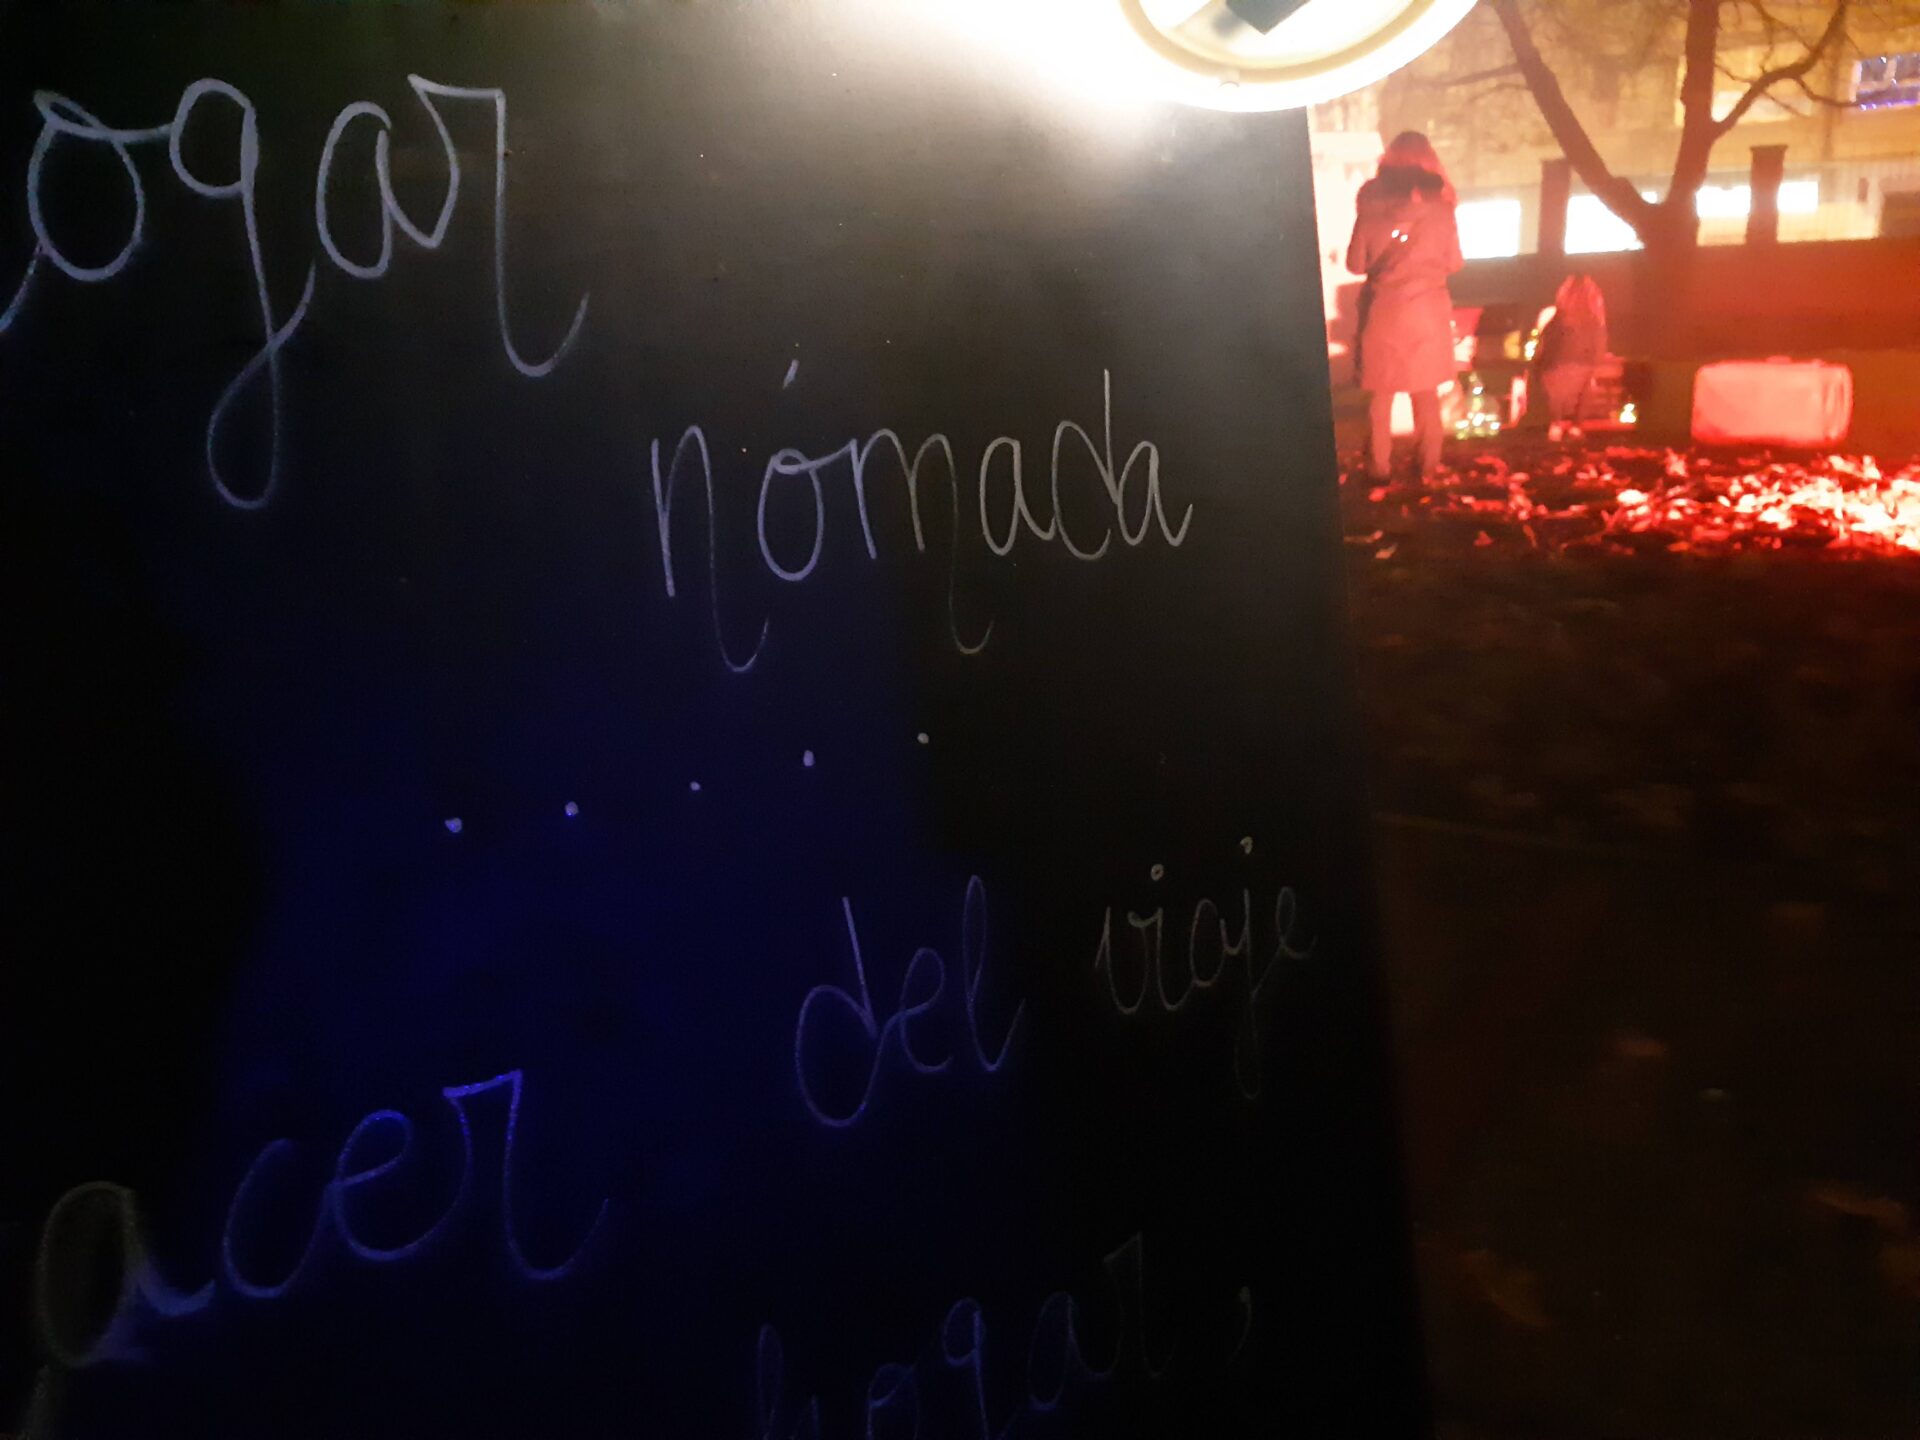 ogar
nómada
.....
del viaje
acer
hogar,